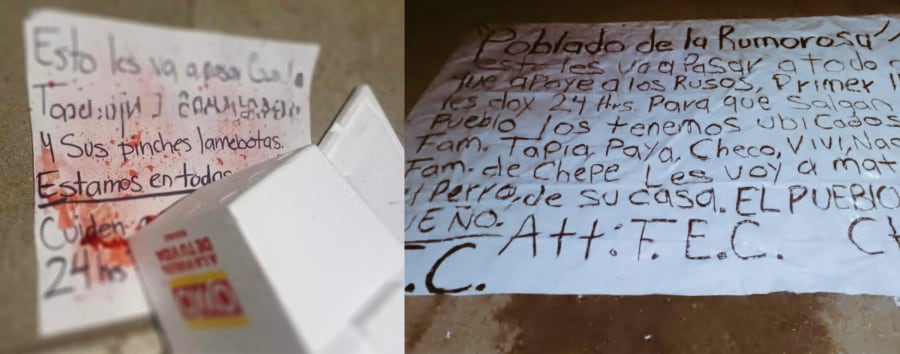 Esto les va a pasar
y Sus pinches lamebotas.
Estamos en todas
Cuiden
24 hrs
OXXO
"Poblado de la Rumorosa"
Esto les va a pasar a todo
que apoye a los Rusos, Primer
les doy 24 Hrs. Para que Salgan
Pueblo los tenemos ubicados
Fam. Tapia, Paya, Checo, Vivi, Nac
Fam. de Chepe Les voy a mat
Perro, de su casa. EL PUEBLO
ENO. Att: F.E.C.
.C.